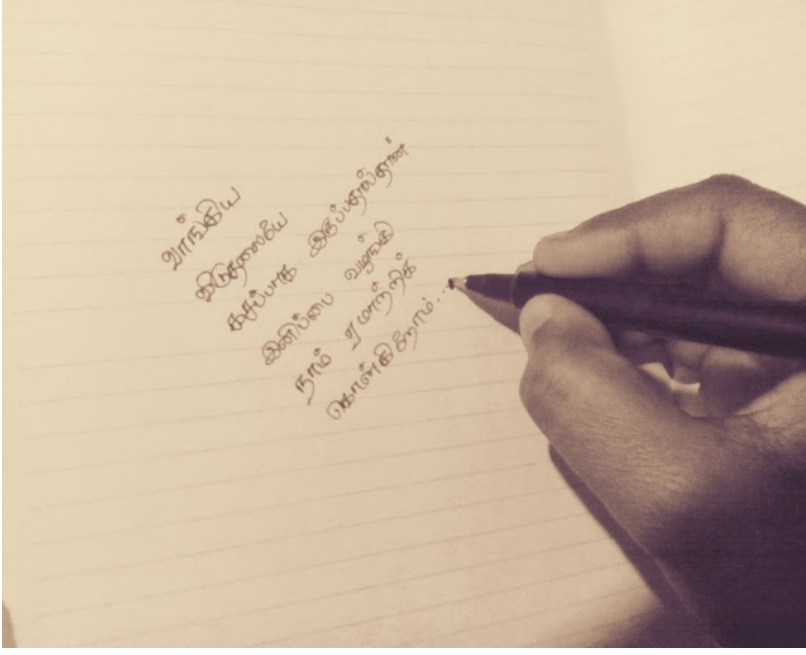 வாங்கிய
விடுதலையே
கசப்பாக இருப்பதால்தான்
இனிப்பை வழங்கி
நாம் ஏமாற்றிக்
கொள்கிறோம்...